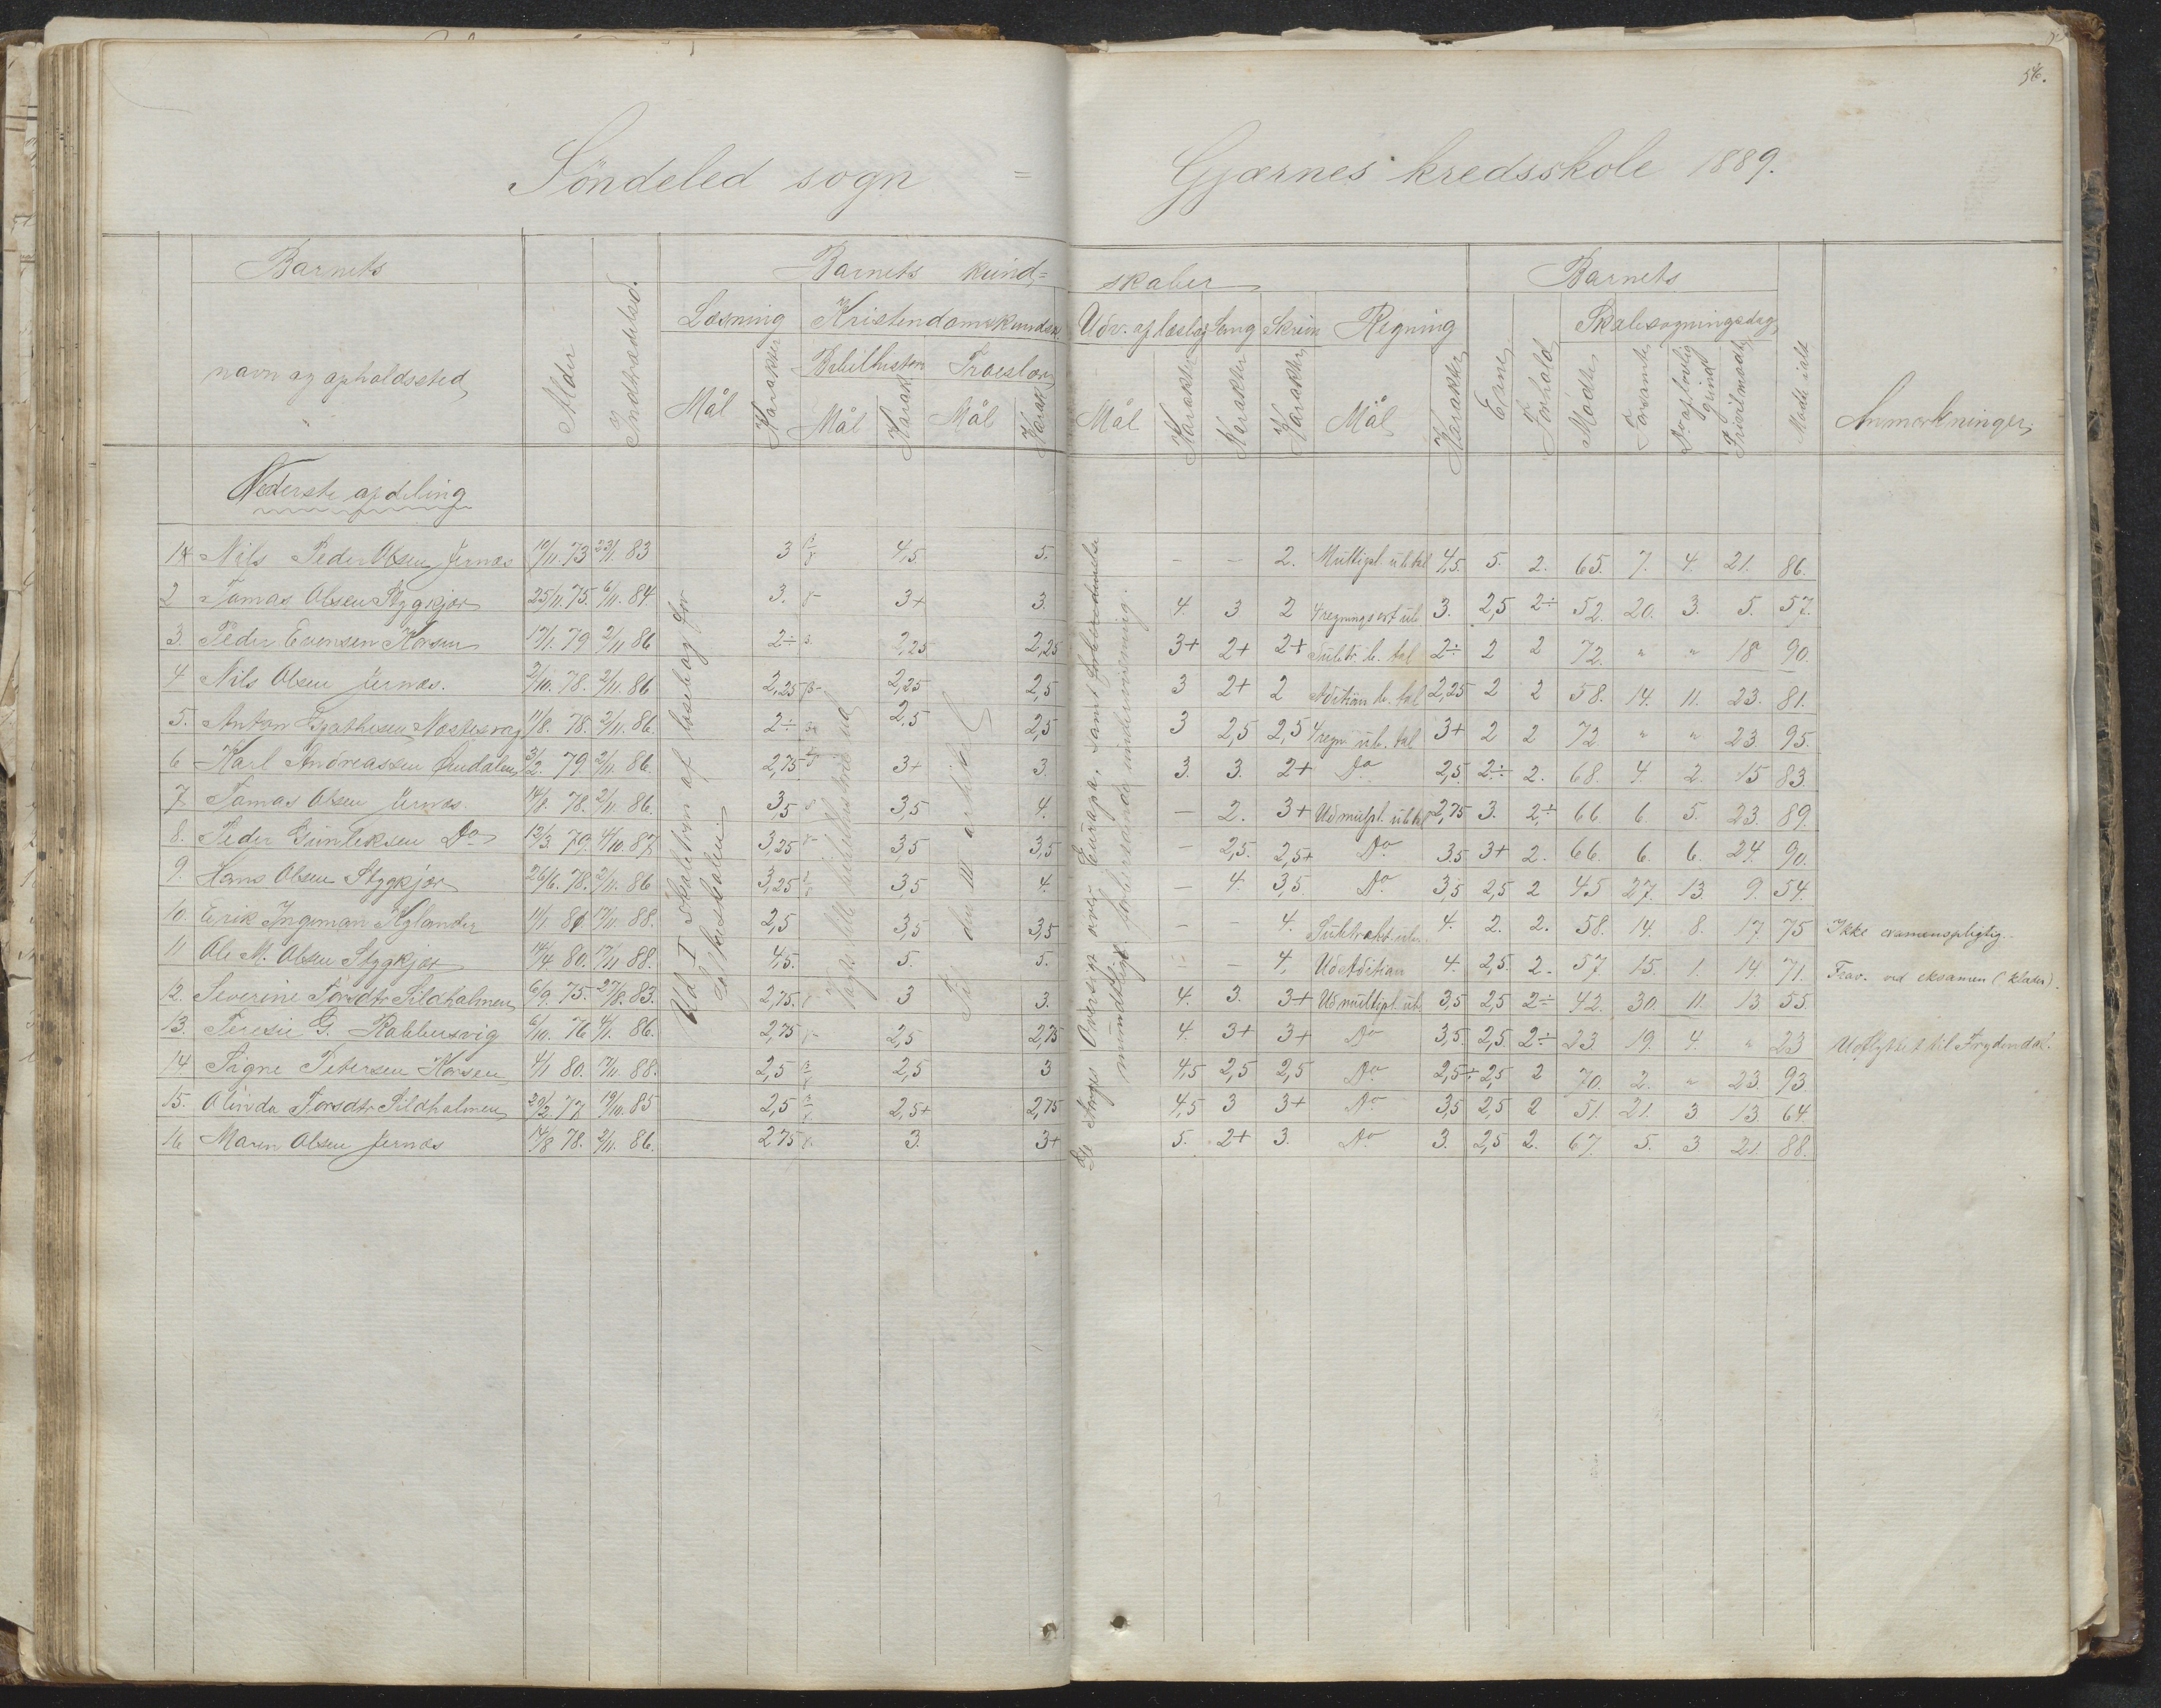 56.
Søndeled sogn = Gjærnes kredsskole 1889.
Barnets Barnets kund= skaber Barnets
Læsning Kristendomskundsk. Udv. af læsebog Sang Skrivn Regning Skolesøgningsdage
navn og opholdssted Alder Indtrædelsesd. Bibelhistorie Troeslære
Mål Karakter Mål Karakt Mål Karakt Mål Karakter Karakter Karakter Mål Karakter Evne Forhold Mødte Forsømte Do af lovlig grund Frivil mødt Mødt ialt Anmerkninger
Nederste afdeling
Ud I skoletrin af læsebog for folkeskolen
den III artikel
Norges Oversigt over Europa, samt forberedende mundtlig undervisning.
1 Nils Peder Olsen Jernæs 10/11. 73 23/1. 83 3 4,5 5. — — 2. Multipl. ub. tal 4,5. 5. 2. 65. 7. 4. 21. 86.
2 Tomas Olsen Stygkjær 25/11. 75. 6/11. 84 3. 3+ 3. 4. 3 2 4 regningsart ub. 3. 2,5 2÷ 52. 20. 3. 5. 57.
3. Peder Evensen Korsen 17/1. 79 2/11 86 2÷ 2,25 2,25 3+ 2+ 2+ Subtr. b. tal 2÷ 2 2 72. " " 18 90.
4 Nils Olsen Jernæs. 2/10. 78. 2/11. 86 2,25 2,25 2,5 3 2+ 2 Adition b. tal 2,25 2 2 58. 14. 11. 23. 81.
5. Anton Agathesen Næstesvag 11/8. 78. 2/11. 86. 2÷ 2,5 2,5 3 2,5 2,5 4 regn. ub. tal 3+ 2 2 72 " " 23. 95.
6 Karl Andreassen Øindalen 3/2. 79. 2/11. 86. 2,75. 3+ 3. 3. 3. 2+ Do 2,5. 2÷ 2. 68. 4. 2. 15 83.
7 Tomas Olsen Jernæs. 14/8. 78. 2/11. 86. 3,5 3,5 4. — 2. 3+ Ud mulpl. ub tal 2,75 3. 2÷ 66 6. 5. 23. 89.
8. Peder Gunleksen Do 13/3. 79. 4/10. 87 3,25 3,5 3,5 — 2,5. 2,5+ Do 3,5 3+ 2. 66. 6. 6. 24. 90.
9. Hans Olsen Stygkjær 26/6. 78. 2/11. 86 3,25 3,5 4. — 4. 3,5. Do. 3,5 2,5 2 45 27. 13. 9. 54.
10. Erik Ingeman Kylander 11/1 80 17/11. 88. 2,5 3,5 3,5 — — 4. Subtrakt. ub. 4. 2. 2. 58. 14. 8. 17. 75 Ikke examenspligtig.
11 Ole M. Olsen Stygkjær 14/4. 80. 17/11 88. 4,5. 5. 5. — — 4. Ud Adition 4. 2,5. 2. 57. 15. 1. 14 71. Frav. ved eksamen (klæder).
12. Severine Torsdtr Sildholmen 6/9. 75. 27/8. 83. 2,75. 3 3. 4. 3. 3+ Ud multipl. ub. 3,5 2,5 2÷ 42. 30. 11. 13 55.
13. Teresie G. Rabbersvig 6/10. 76 4/1. 86. 2,75 2,5 2,75 4. 3+ 3+ Do 3,5. 2,5. 2÷ 23 19. 4. " 23 Udflyttet til Frydendal.
14 Signe Petersen Korsen 4/1 80. 17/11. 88. 2,5 2,5 3 4,5 2,5 2,5 Do 2,5÷ 2,5 2 70. 2. " 23. 93
15. Olinda Torsdtr Sildholmen 29/12. 77. 19/10. 85 2,5 2,5+ 2,75 4,5 3 3+ Do 3,5 2,5 2 51. 21. 3 13. 64.
16 Maren Olsen Jernæs 14/8 78. 2/11. 86. 2,75 3. 3+ 5. 2+ 3. Do 3. 2,5 2. 67. 5. 3. 21. 88.